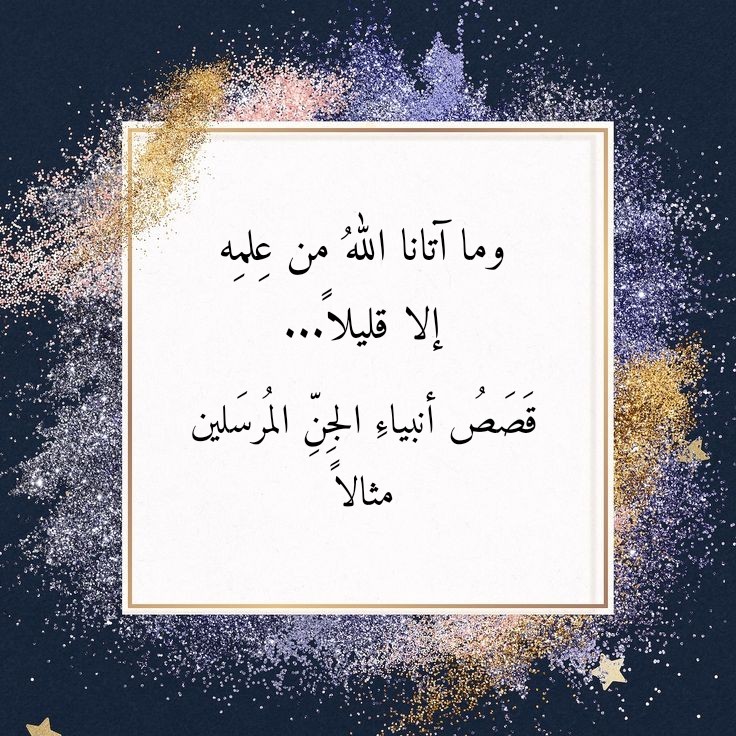 وما آتانا اللهُ من عِلمِه
إلا قليلاً...
قَصَصُ أنبياءِ الجِنِّ المُرسَلين
مثالاً